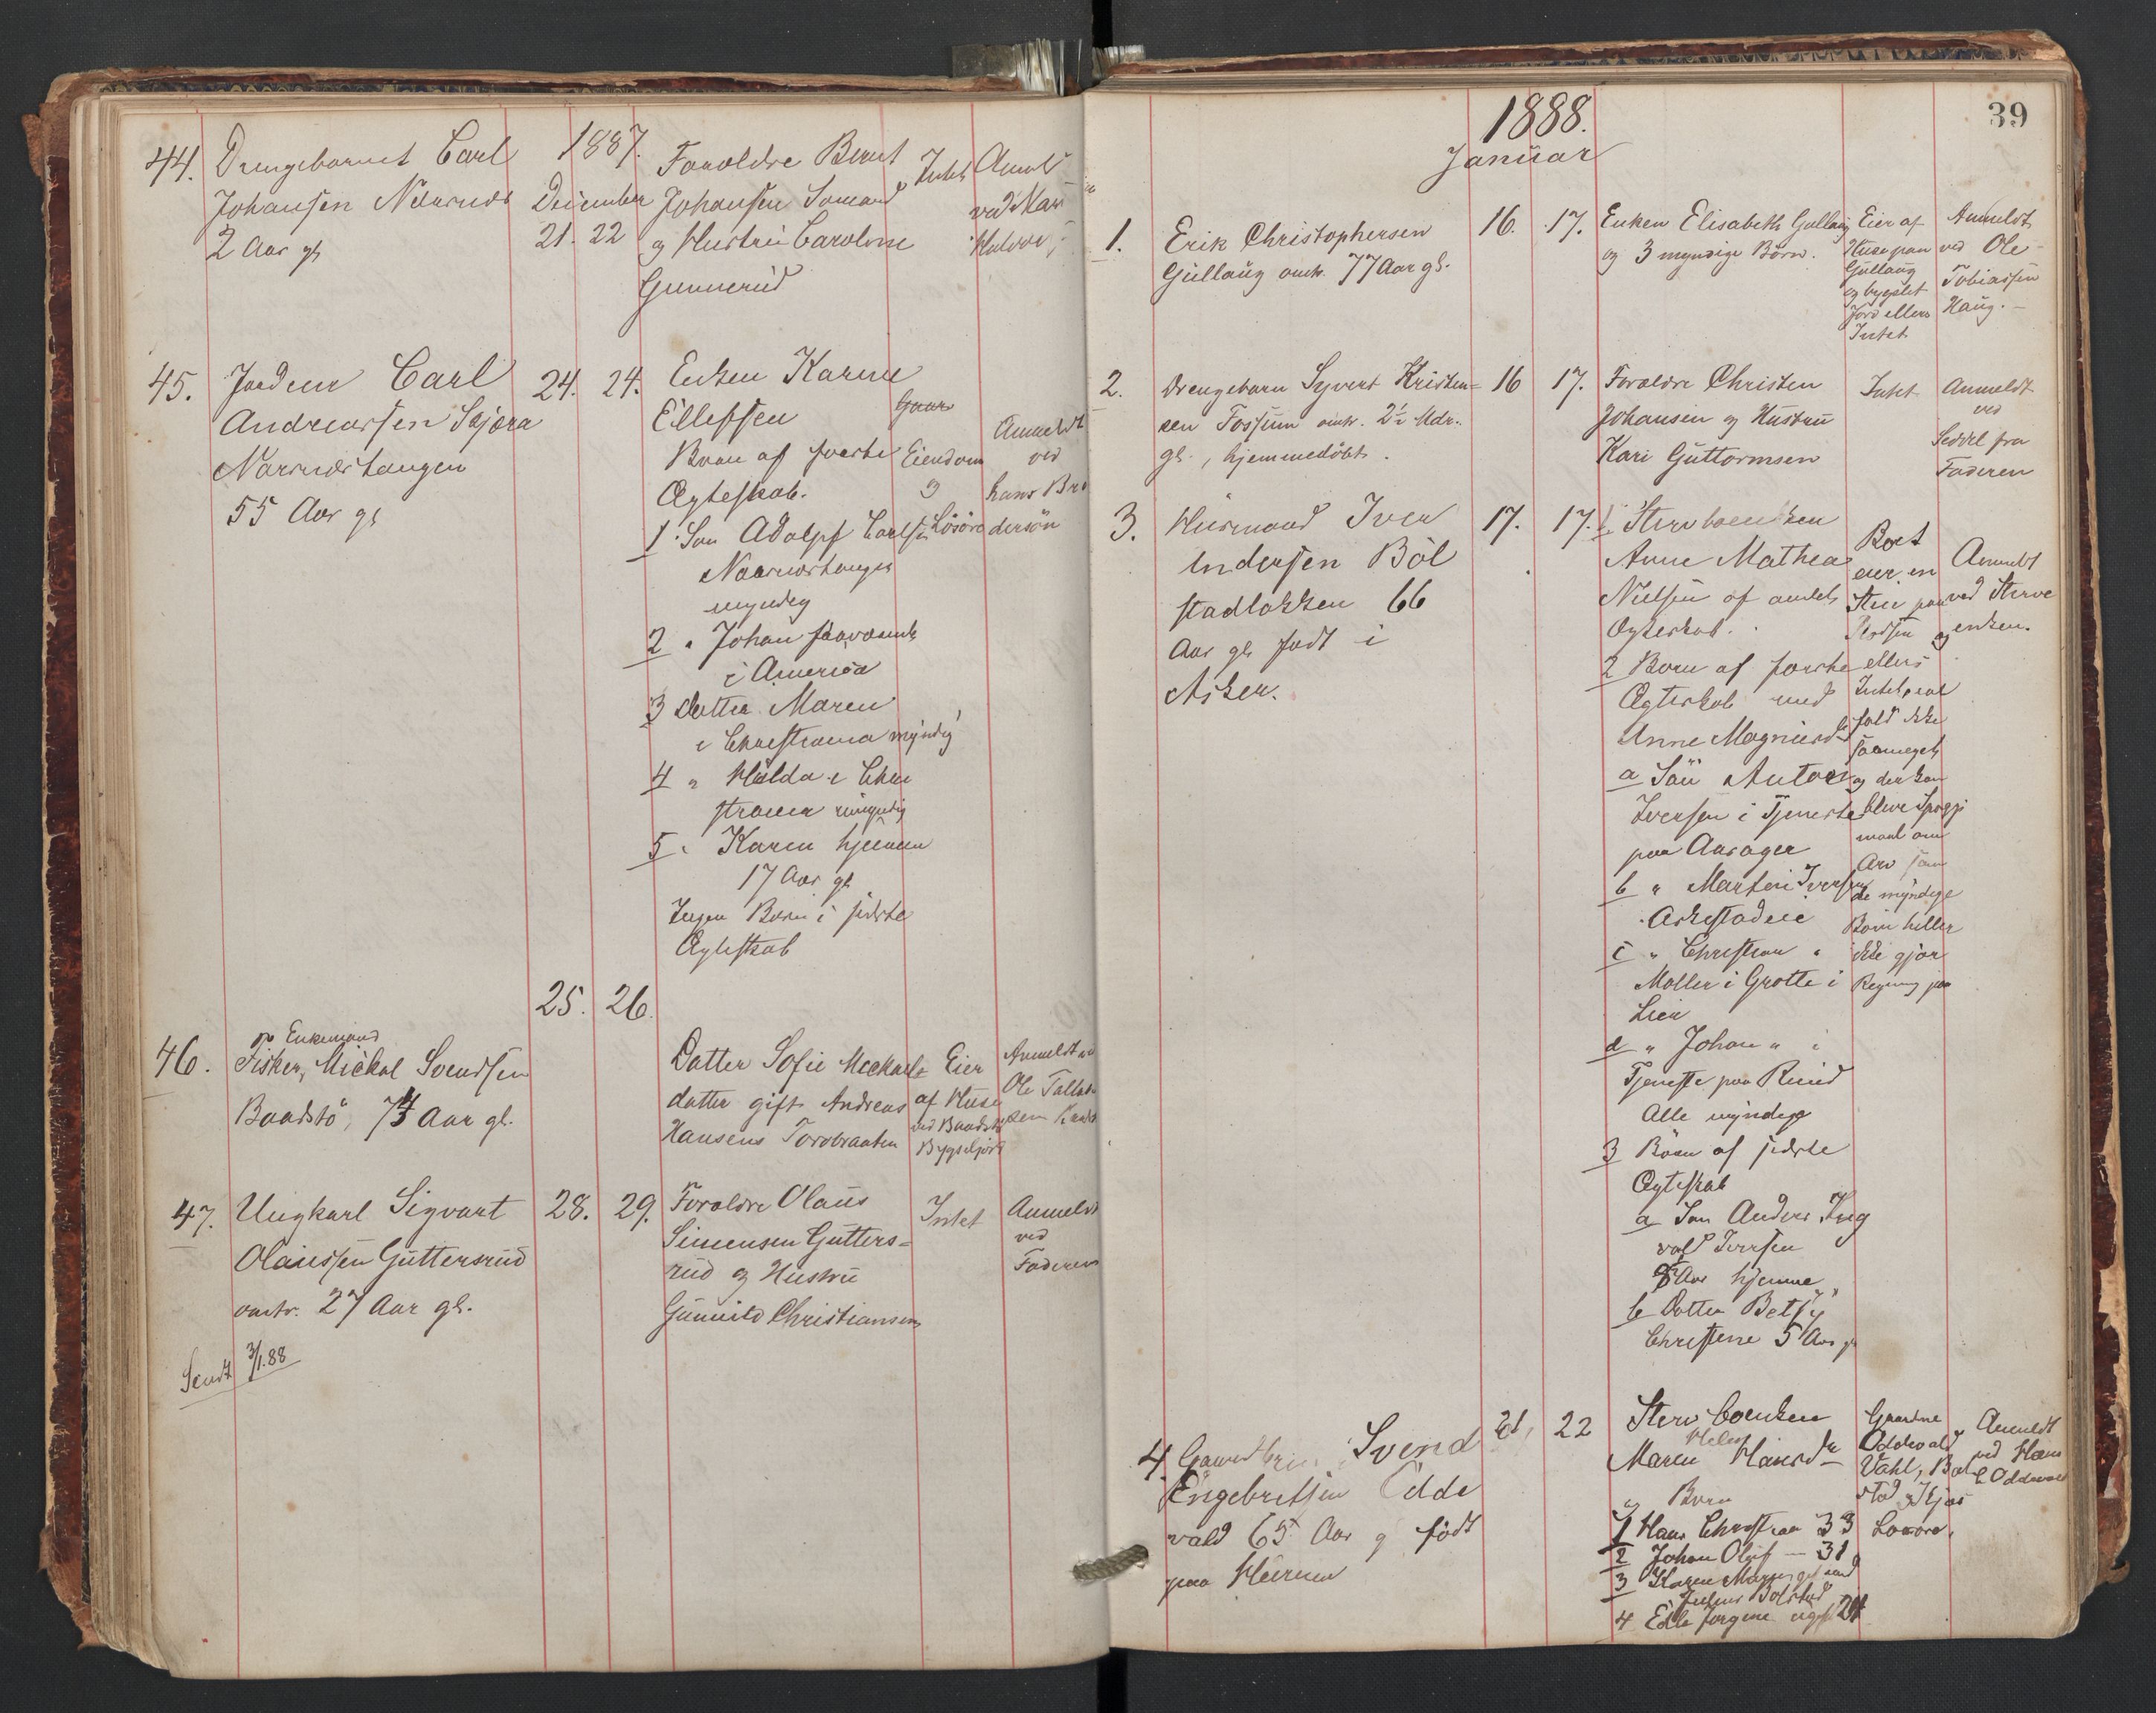 1887.
44. Drengebarnet Carl
Johansen Næsnes
2 Aar gl
December
21. 22
Forældre Bernt
Johansen Sømand
og Hustru Caroline
Gunnerud
Intet
Anmel
ved
45. Carl
Andreassen Skjæra
Narsnæstangen
55 Aar gl
24. 24.
Enken Karine
Ellefsen
Børn af første
Ægteskab.
1 Søn Adolpf Carlsen
Naarnæstangen
myndig
2 " Johan fraværende
i America
3 Datter Maren
i Christiania myndig
4 " Hulda i Chri
stiania umyndig
5 " Karen hjemme
17 Aar gl
Ingen Børn i sidste
Ægteskab
Gaar
Eiendom
og
Løsøre
Anmeldt
ved
hans Bro
dersøn
25. 26.
46. og Enkemand
Fisker, Mickal Svendsen
Baadstö, 74 Aar gl.
Datter Sofie Mickaels
datter gift Andreas
Hansens Torvbraaten
Eier
af Huse
ved Baadstö
Bygseljord
Anmeldt ve
Ole
47. Ungkarl Sigvart
Olaussen Guttersrud
omtr. 27 Aar gl.
28. 29.
Forældre Olaus
Simensen Gutters=
rud og Hustru
Gunnild Christiansen
Intet
Anmeldt
ved
Faderen
Sendt 3/1.88
39
1888.
Januar
1. Erik Christophersen
Gullaug omtr. 77 Aar gl.
16. 17.
Enken Elisabeth Gullaug
og 3 myndige Børn.
Eier af
Huse paa
Gullaug
og bygslet
Jord ellers
Intet
Anmeldt
ved Ole
Tobiassen
Haug.
2. Drengebarn Syvert Kristen=
sen Fossum omtr. 2½ Mdr.
gl., hjemmedöbt.
16 17.
Forældre Christen
Johansen og Hustru
Kari Guttormsen
Intet
Anmeldt
ved
Seddel fra
Faderen
3. Husmand Iver
Andersen Böl
stadløkken 66
Aar gl født i
Asker.
17. 17.
Stervboenken
Anne Mathea
Nielsen af andet
Ægteskab.
2 Børn af første
Ægteskab med
Anne Magnusd
a Søn Anton
Iversen i Tjeneste
paa Aarager
b " Martin Iversen
Askestadeie
c " Christian "
Møller i Grotte i
Lier
d " Johan " i
Tjeneste paa Ruud
Alle myndige
3 Börn af sidste
Ægteskab
a Søn Anders Ing
vald Iversen
8 Aar hjemme
b Datter Betsy
Christine 5 Aar gl
Boet
eier en
Stue paa
og
ellers
Intet, ial
fald ikke
saameget
og der kan
blive Spørgs
maal om
Arv som
de myndige
Börn heller
ikke gjør
Regning paa
Anmeldt
ved Stervbo
enken.
4. Svend
Engebretsen Odde
vald 65 Aar gl född
paa Hurum
21, 22
Stervboenken
Helen
Maren Hansd
og Børn
1 Hans Christian 33
2 Johan Oluf — 31
3 Karen Maren gift med
Julius Bölstad
4 Edle Jørgine ugift 24
Gaardene
Oddevald
Vahl, Böl
stad og
Løsøre.
Anmeldt
ved Hans
C Oddevald